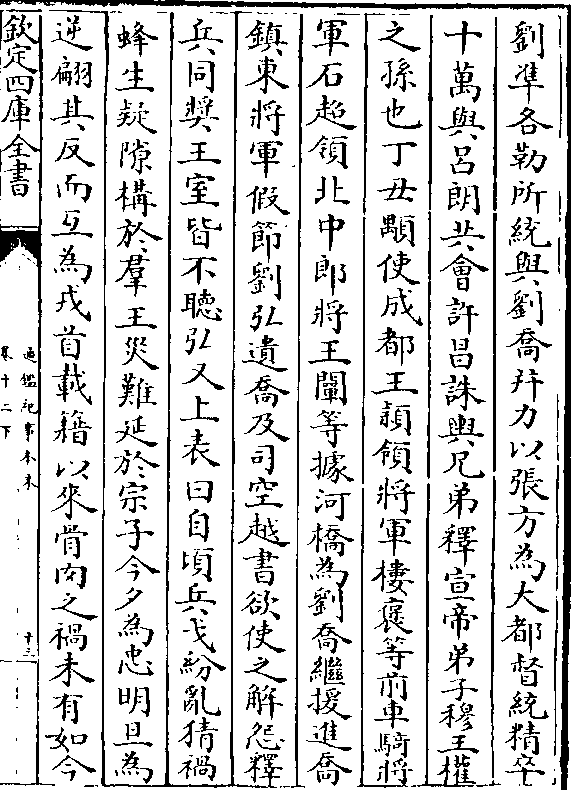 劉準各勒所統與劉喬并力以張方為大都督統精卒
十萬與呂朗共會許昌誅輿兄弟釋宣帝弟子穆王權
之孫也丁丑顒使成都王穎領將軍樓褒等前車騎將
軍石超領北中郎將王闡等據河橋為劉喬繼援進喬
鎮東將軍假節劉弘遺喬及司空越書欲使之解怨釋
兵同奬王室皆不聽弘又上表曰自頃兵戈紛亂猜禍
蜂生疑隙構於羣王災難延於宗子今夕為忠明旦為
逆翩其反而互為戎首載籍以來骨肉之禍未有如今
欽定四庫全書
通鑑紀事本末
卷十二下
十三